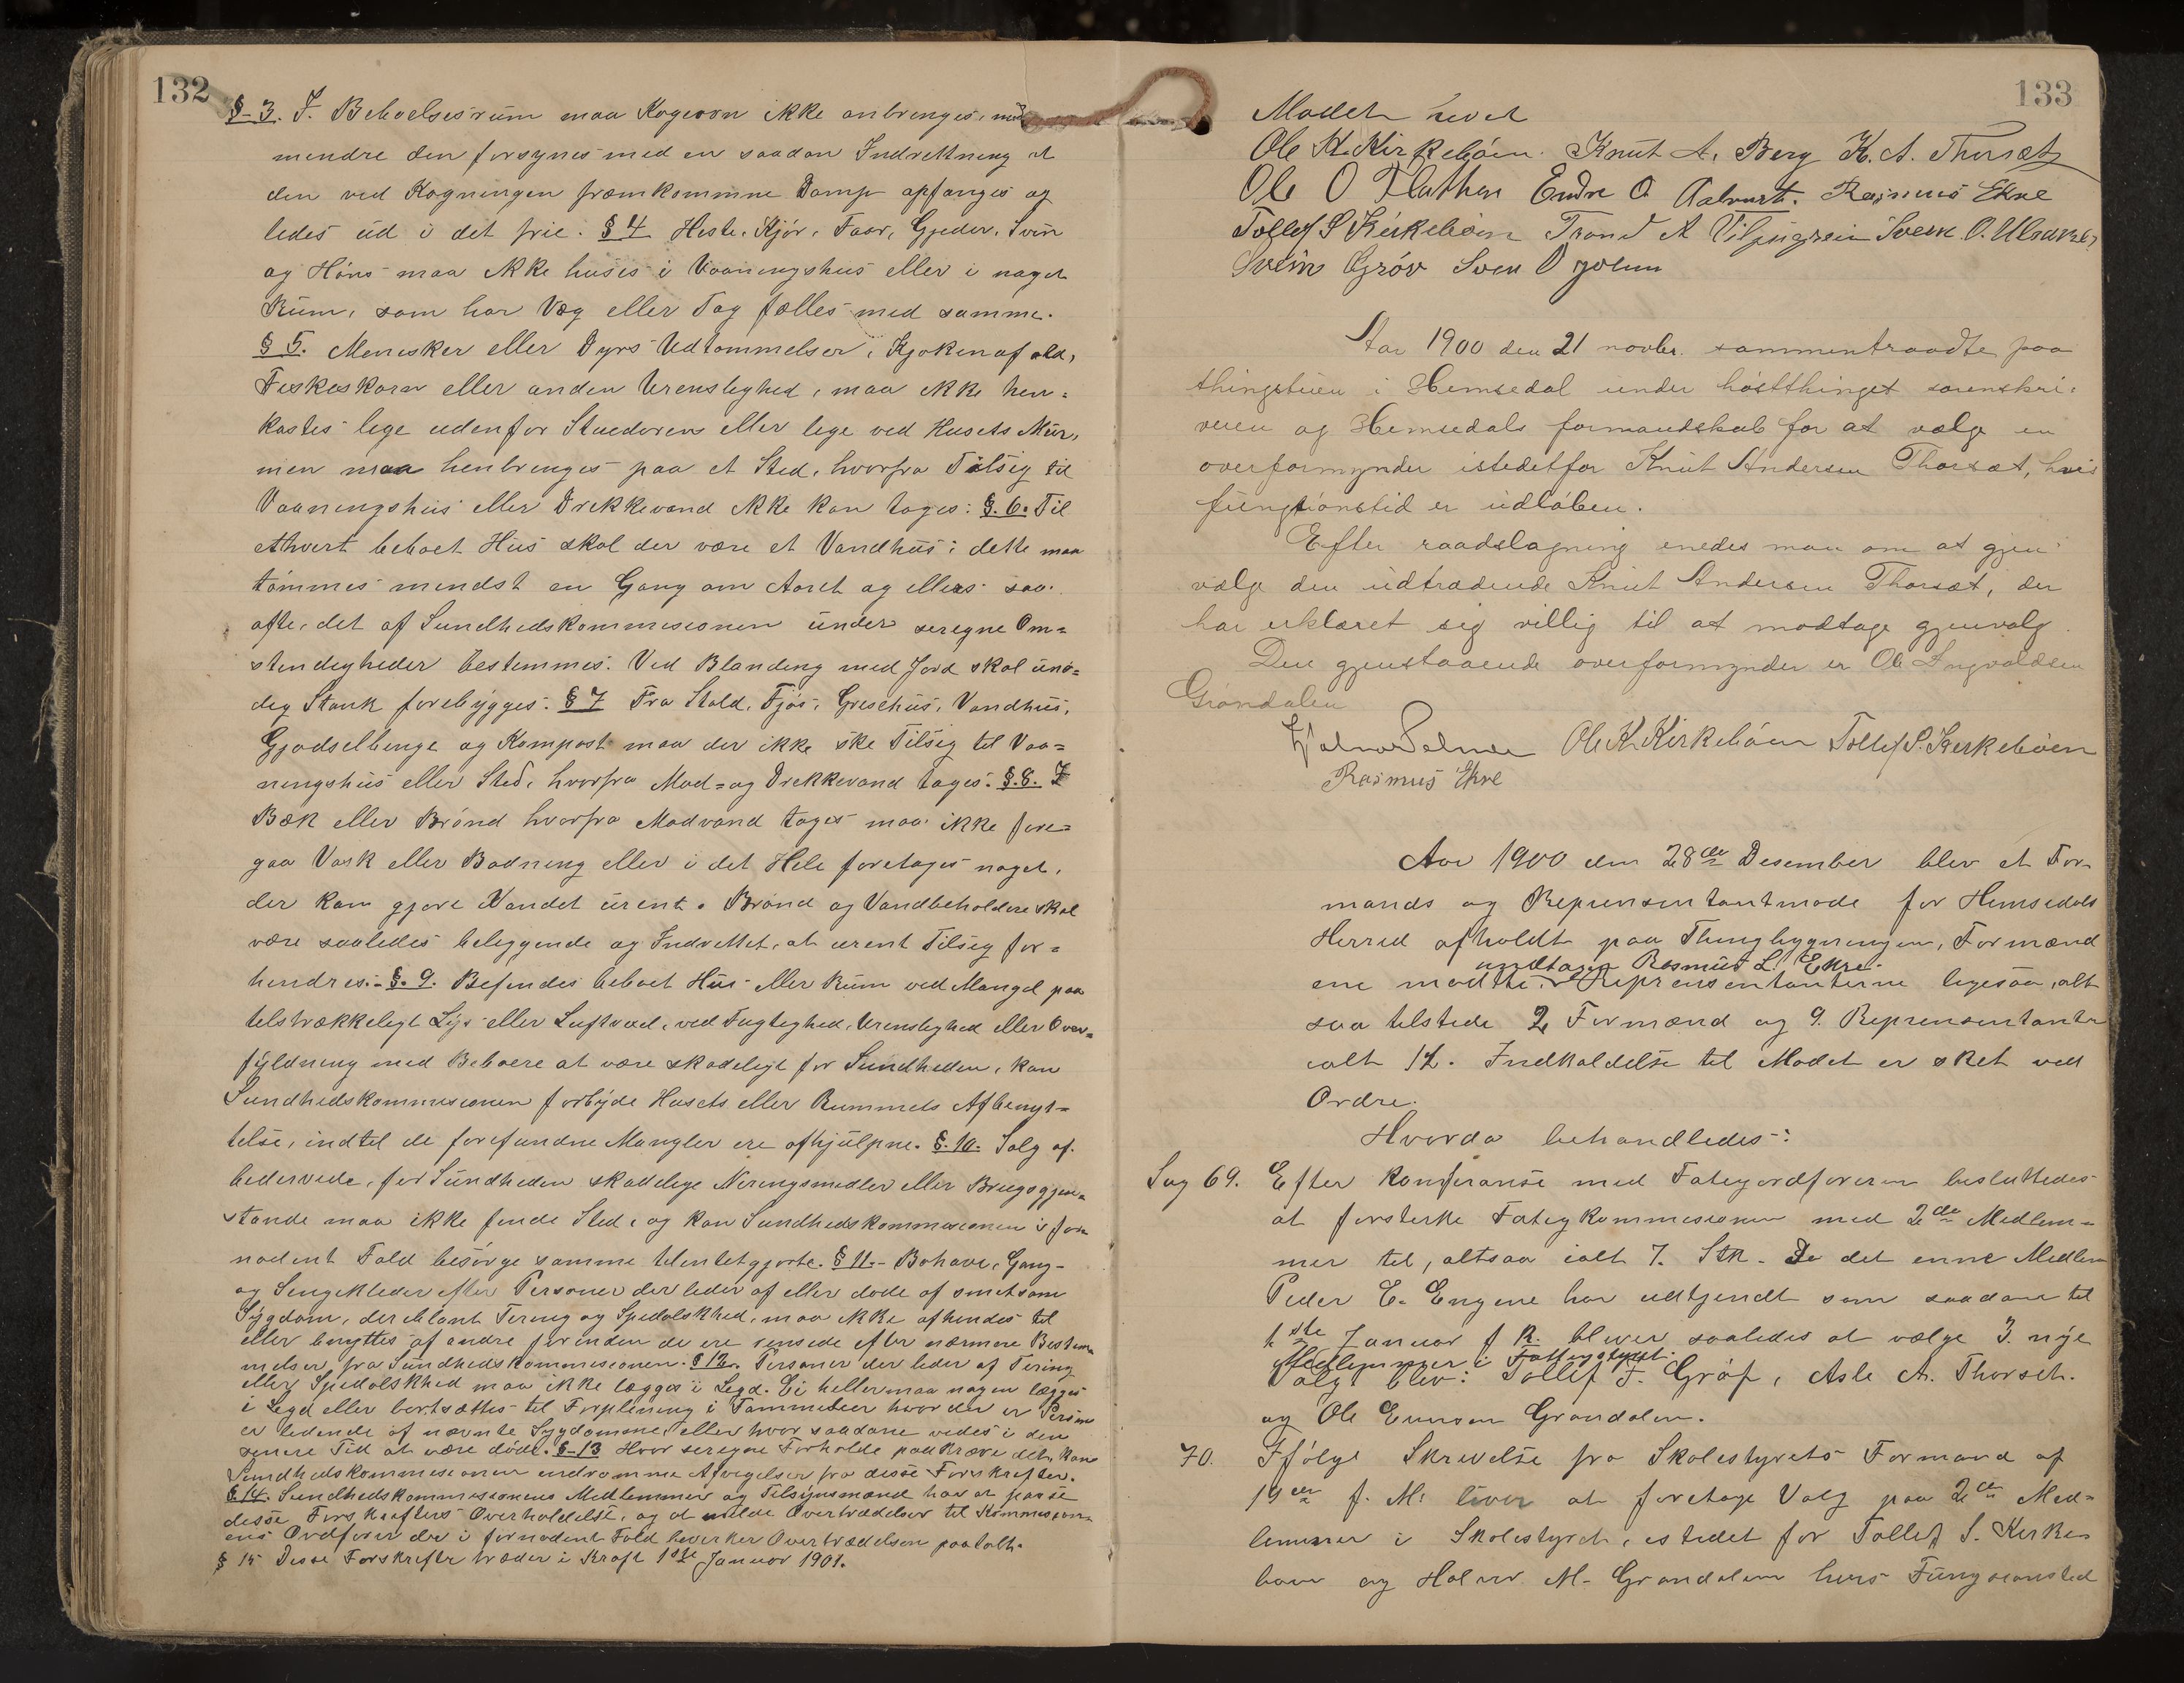 132
§ 3. I. Beboelsesrum maa Kogeovn ikke anbringes, med
mendre den forsynes med en saadan Indrettning at
den ved Kogningen fræmkommne Damp opfanges og
ledes ud i det frie. § 4 Heste, Kjør, Faar, Gjeder, Svin
og Høns maa ikke huses i Vaaningshus eller i noget
Rum, som har Væg eller Tag fælles med samme.
§ 5. Menisker eller Dyrs Udtømmelser, Kjøkenafald,
Feskeskarn eller anden Urenslighed, maa ikke hen=
kastes lige udenfor Stuedoren eller lige ved Husets Mur,
men maa henbringes paa et Sted, hvorfra Tilsig til
Vaaningshus eller Drekkevand ikke kan tages: §. 6. Til
ethvert beboet Hus skal der være et Vandhus; dette maa
tømmes mindst en Gang om Aaret og ellers saa
ofte, det af Sundhedskommissionen under seregne Om=
stendigheder bestemmes. Ved Blanding med Jord skal unø=
dig Stank forebygges. § 7 Fra Stald, Fjøs, Grisehus, Vandhus,
Gjødselbinge og Kompost maa der ikke ske Tilsig til Vaa=
ningshus eller Sted, hvorfra Mad= og Drekkevand tages. §. 8. I
Bæk eller Brønd hvorfra Madvand tages maa ikke fore=
gaa Vask eller Badning eller i det Hele foretages noget,
der kan gjøre Vandet urent. Brønd og Vandbeholdere skal
være saaledes beliggende og Indrettet, at urent Tilsig for=
hindres. §. 9. Befindes beboet Hus eller Rum ved Mangel paa
tilstrækkeligt Lys eller Luftvexel, ved Fugtighed, Urenslighed eller Over=
fyldning med Beboere at være skadeligt for Sundheden, kan
Sundhedskommissionen forbyde Husets eller Rummets Afbenyt=
telse, indtil de forefundne Mangler ere afhjulpne. §. 10. Salg af
bedervede, for Sundheden skadelige Neringsmedler eller Brugsgjen=
stande maa ikke finde Sted, og kan Sundhedskommissionen i for
nødent Fald besørge samme tilintetgjorte. § 11. Bohave, Gang-
og Sengekleder efter Personer der leder af eller døde af smitsom
Sygdom, deriblant Tering og Spedalskhed, maa ikke afhendes til
eller benyttes af andre forinden de ere rensede efter nærmere Bestem
melser fra Sundhedskommissionen. § 12. Personer der leder af Tering
eller Spedalskhed maa ikke lægges i Legd. Ei heller maa nogen lægges
i Legd eller bortsættes til Forpleining i Fammilier hvor der er Person
er ledende af nævnte Sygdomme, eller hvor saadane vedes i den
senere Tid at være døde. § 13 Hvor seregne Forholde paakræve det, kan
Sundhedskommissionen indrømme Afvigelser fra disse Forskrefter.
§ 14. Sundhedskommissionens Medlemmer og Tilsynsmænd har at paase
disse Forskrefters Overholdelse, og at melde Overtrædelser til Kommission
ens Ordfører der i fornødent Fald bevirker Overtrædelsen paatalt.
§ 15 Disse Forskrefter træder i Kraft 1ste Januar 1901.
133
Mødet hevet
Ole K. Kirkebøen. Knut A. Berg K. A. Thorset
Ole O Flathen Endre O Aalrust. Rasmus Ekre
Tollef S Kirkebøen Trond A Ulsaker Svein O. Ulsaker
Svein Grøv Sven O Jolum
Aar 1900 den 21 novbr. sammentraadte paa
thingstuen i Hemsedal under høstthinget sorenskri=
veren og Hemsedals formandskab for at vælge en
overformynder istedetfor Knut Andersen Thorset, hvis
fungtionstid er udløben.
Efter raadslagning enedes man om at gjen
vælge den udtrædende Knut Andersen Thorset, der
har erklæret sig villig til at modtage gjenvalg.
Den gjenstaaende overformynder er Ole Ingvaldsen
Grøndalen
Ole K. Kirkebøen Tollef S. Kirkebøen
Rasmus Ekre
Aar 1900 den 28de Desember blev et For
mands og Reprensentantmøde for Hemsedals
Herred afholdt paa Thingbygningen, Formænd
undtagen Rasmus L. Ekre.
ene mødtte. Reprensentanterne ligesaa, alt
saa tilstede 2 Formænd og 9. Reprensentanter
ialt 12. Indkaldelse til Mødet er sket ved
Ordre.
Hvorda behandledes:
Sag 69. Efter Konferanse med Fatigordføreren besluttedes
at forsterke Fatigkommissionen med 2de Medlem=
mer til, altsaa ialt 7. Stk. Da det enne Medlem
Peder E. Engene har udtjendt som saadan til
1ste Januar f R. bliver saaledes at vælge 3. nye
Medlemmer i Fattigstyret.
Valgt blev: Tollef T. Grøf, Asle A. Thorset.
og Ole Ensen Grøndalen.
70. Ifølge Skrivelse fra Skolestyrets Formand af
19de f. M. bliver at foretage Valg paa 2de Med=
lemmer i Skolestyret, istedet for Tollef S. Kirke
bøen og Halvor M. Grøndalen hvis Fungsionstid